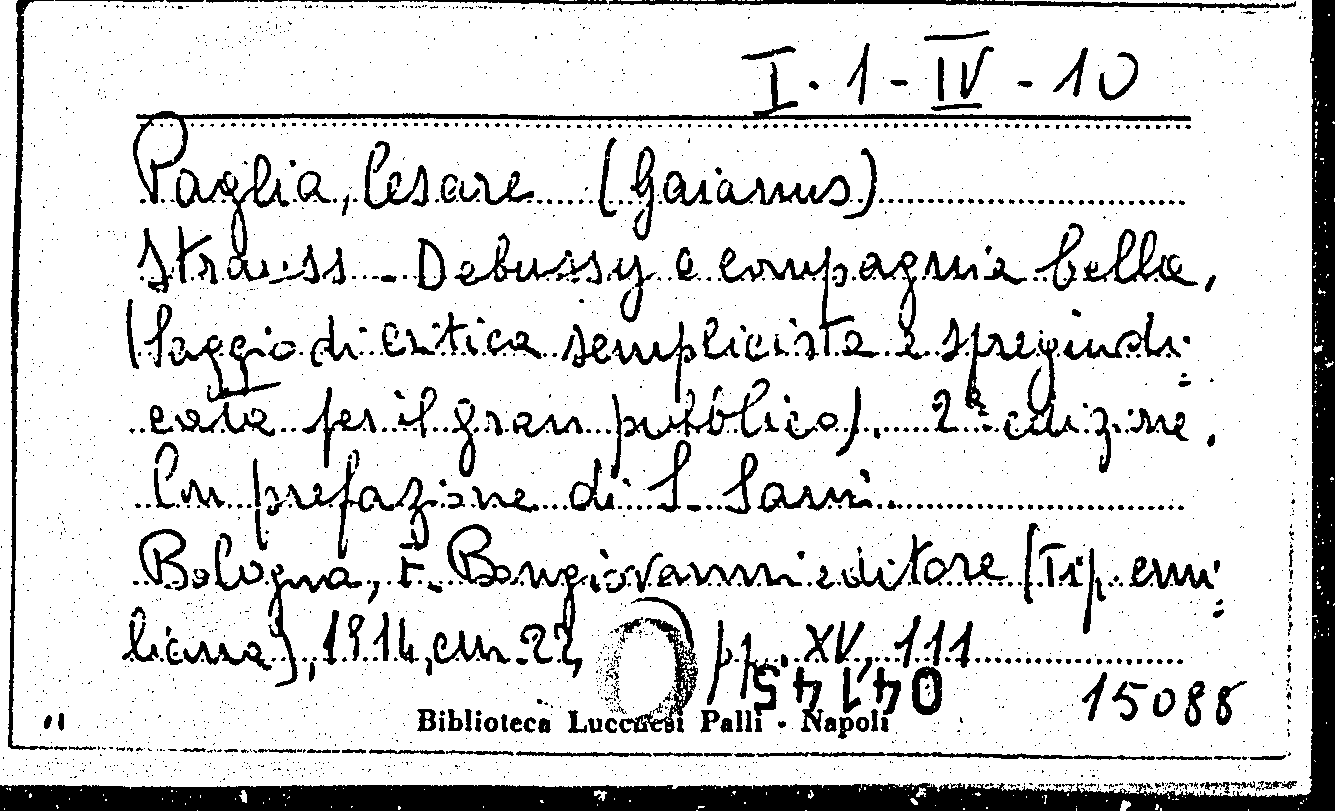 I. 1 - IV - 10
Paglia, Cesare (Gaianus)
Strauss - Debussy e compagnia bella,
(Saggio di critica semplicista e spregiudi=
cata per il gran pubblico). 2ª edizione.
Con prefazione di S.
Bologna, F. Bongiovanni editore (Tip. emi=
liana), 1914, cm. 22, pp. XV, 111
04145
15088
Biblioteca Lucchesi Palli - Napoli